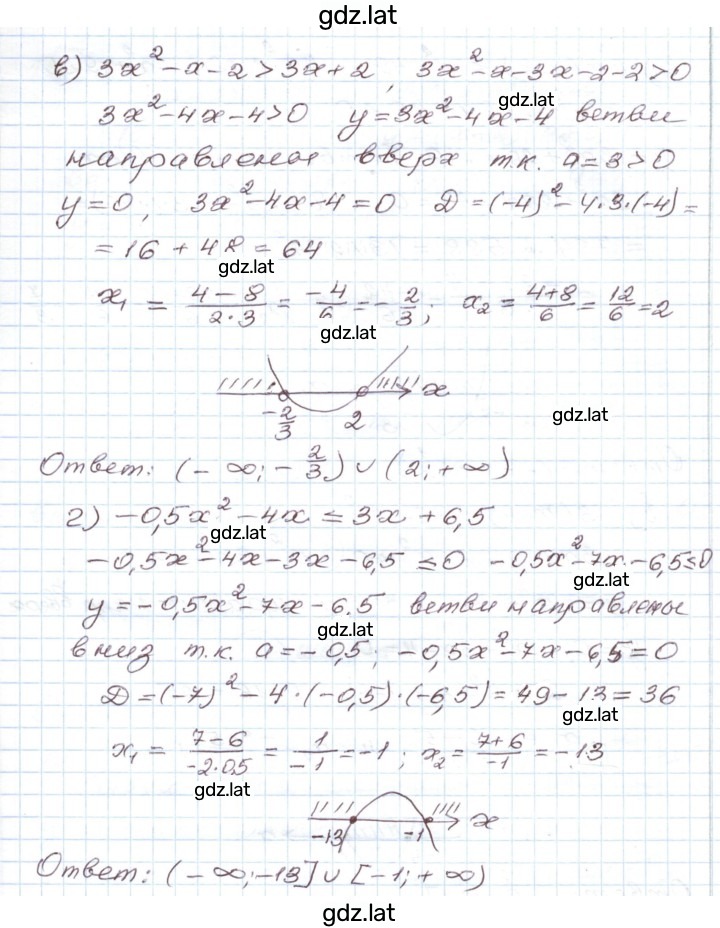 gdz.lat
в) 3x² - x - 2 > 3x + 2, 3x² - x - 3x - 2 - 2 > 0
gdz.lat
3x² - 4x - 4 > 0 y = 3x² - 4x - 4 ветви
направлены вверх т.к. a = 3 > 0
y = 0, 3x² - 4x - 4 = 0 D = (-4)² - 4·3·(-4) =
= 16 + 48 = 64
gdz.lat
x₁ = (4 - 8)/(2·3) = -4/6 = -2/3; x₂ = (4+8)/6 = 12/6 = 2
gdz.lat
x
-2/3 2
gdz.lat
Ответ: (-∞; -2/3) ∪ (2; +∞)
г) -0,5x² - 4x ≤ 3x + 6,5
gdz.lat
-0,5x² - 4x - 3x - 6,5 ≤ 0 -0,5x² - 7x - 6,5 ≤ 0
gdz.lat
y = -0,5x² - 7x - 6.5 ветви направлены
gdz.lat
вниз т.к. a = -0,5; -0,5x² - 7x - 6,5 = 0
D = (-7)² - 4·(-0,5)·(-6,5) = 49 - 13 = 36
gdz.lat
x₁ = (7 - 6)/(-2·0,5) = 1/-1 = -1; x₂ = (7+6)/-1 = -13
gdz.lat
x
-13 -1
Ответ: (-∞; -13] ∪ [-1; +∞)
gdz.lat